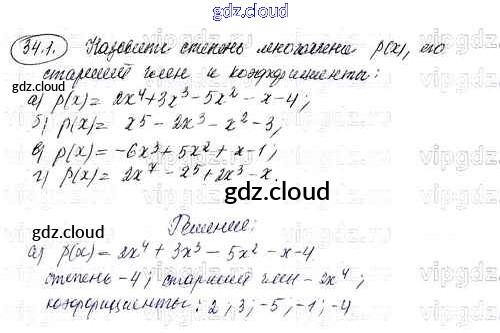 gdz.cloud
34.1. Назовите степень многочлена p(x), его
старший член и коэффициенты:
а) p(x) = 2x⁴+3x³-5x²-x-4;
б) p(x) = x⁵-2x³-x²-3;
в) p(x) = -6x³+5x²+x-1;
г) p(x) = 2x⁷-2⁵+2x³-x.
gdz.cloud
Решение:
а) p(x) = 2x⁴+3x³-5x²-x-4.
степень -4; старший член -2x⁴;
коэффициенты: 2; 3; -5; -1; -4
gdz.cloud